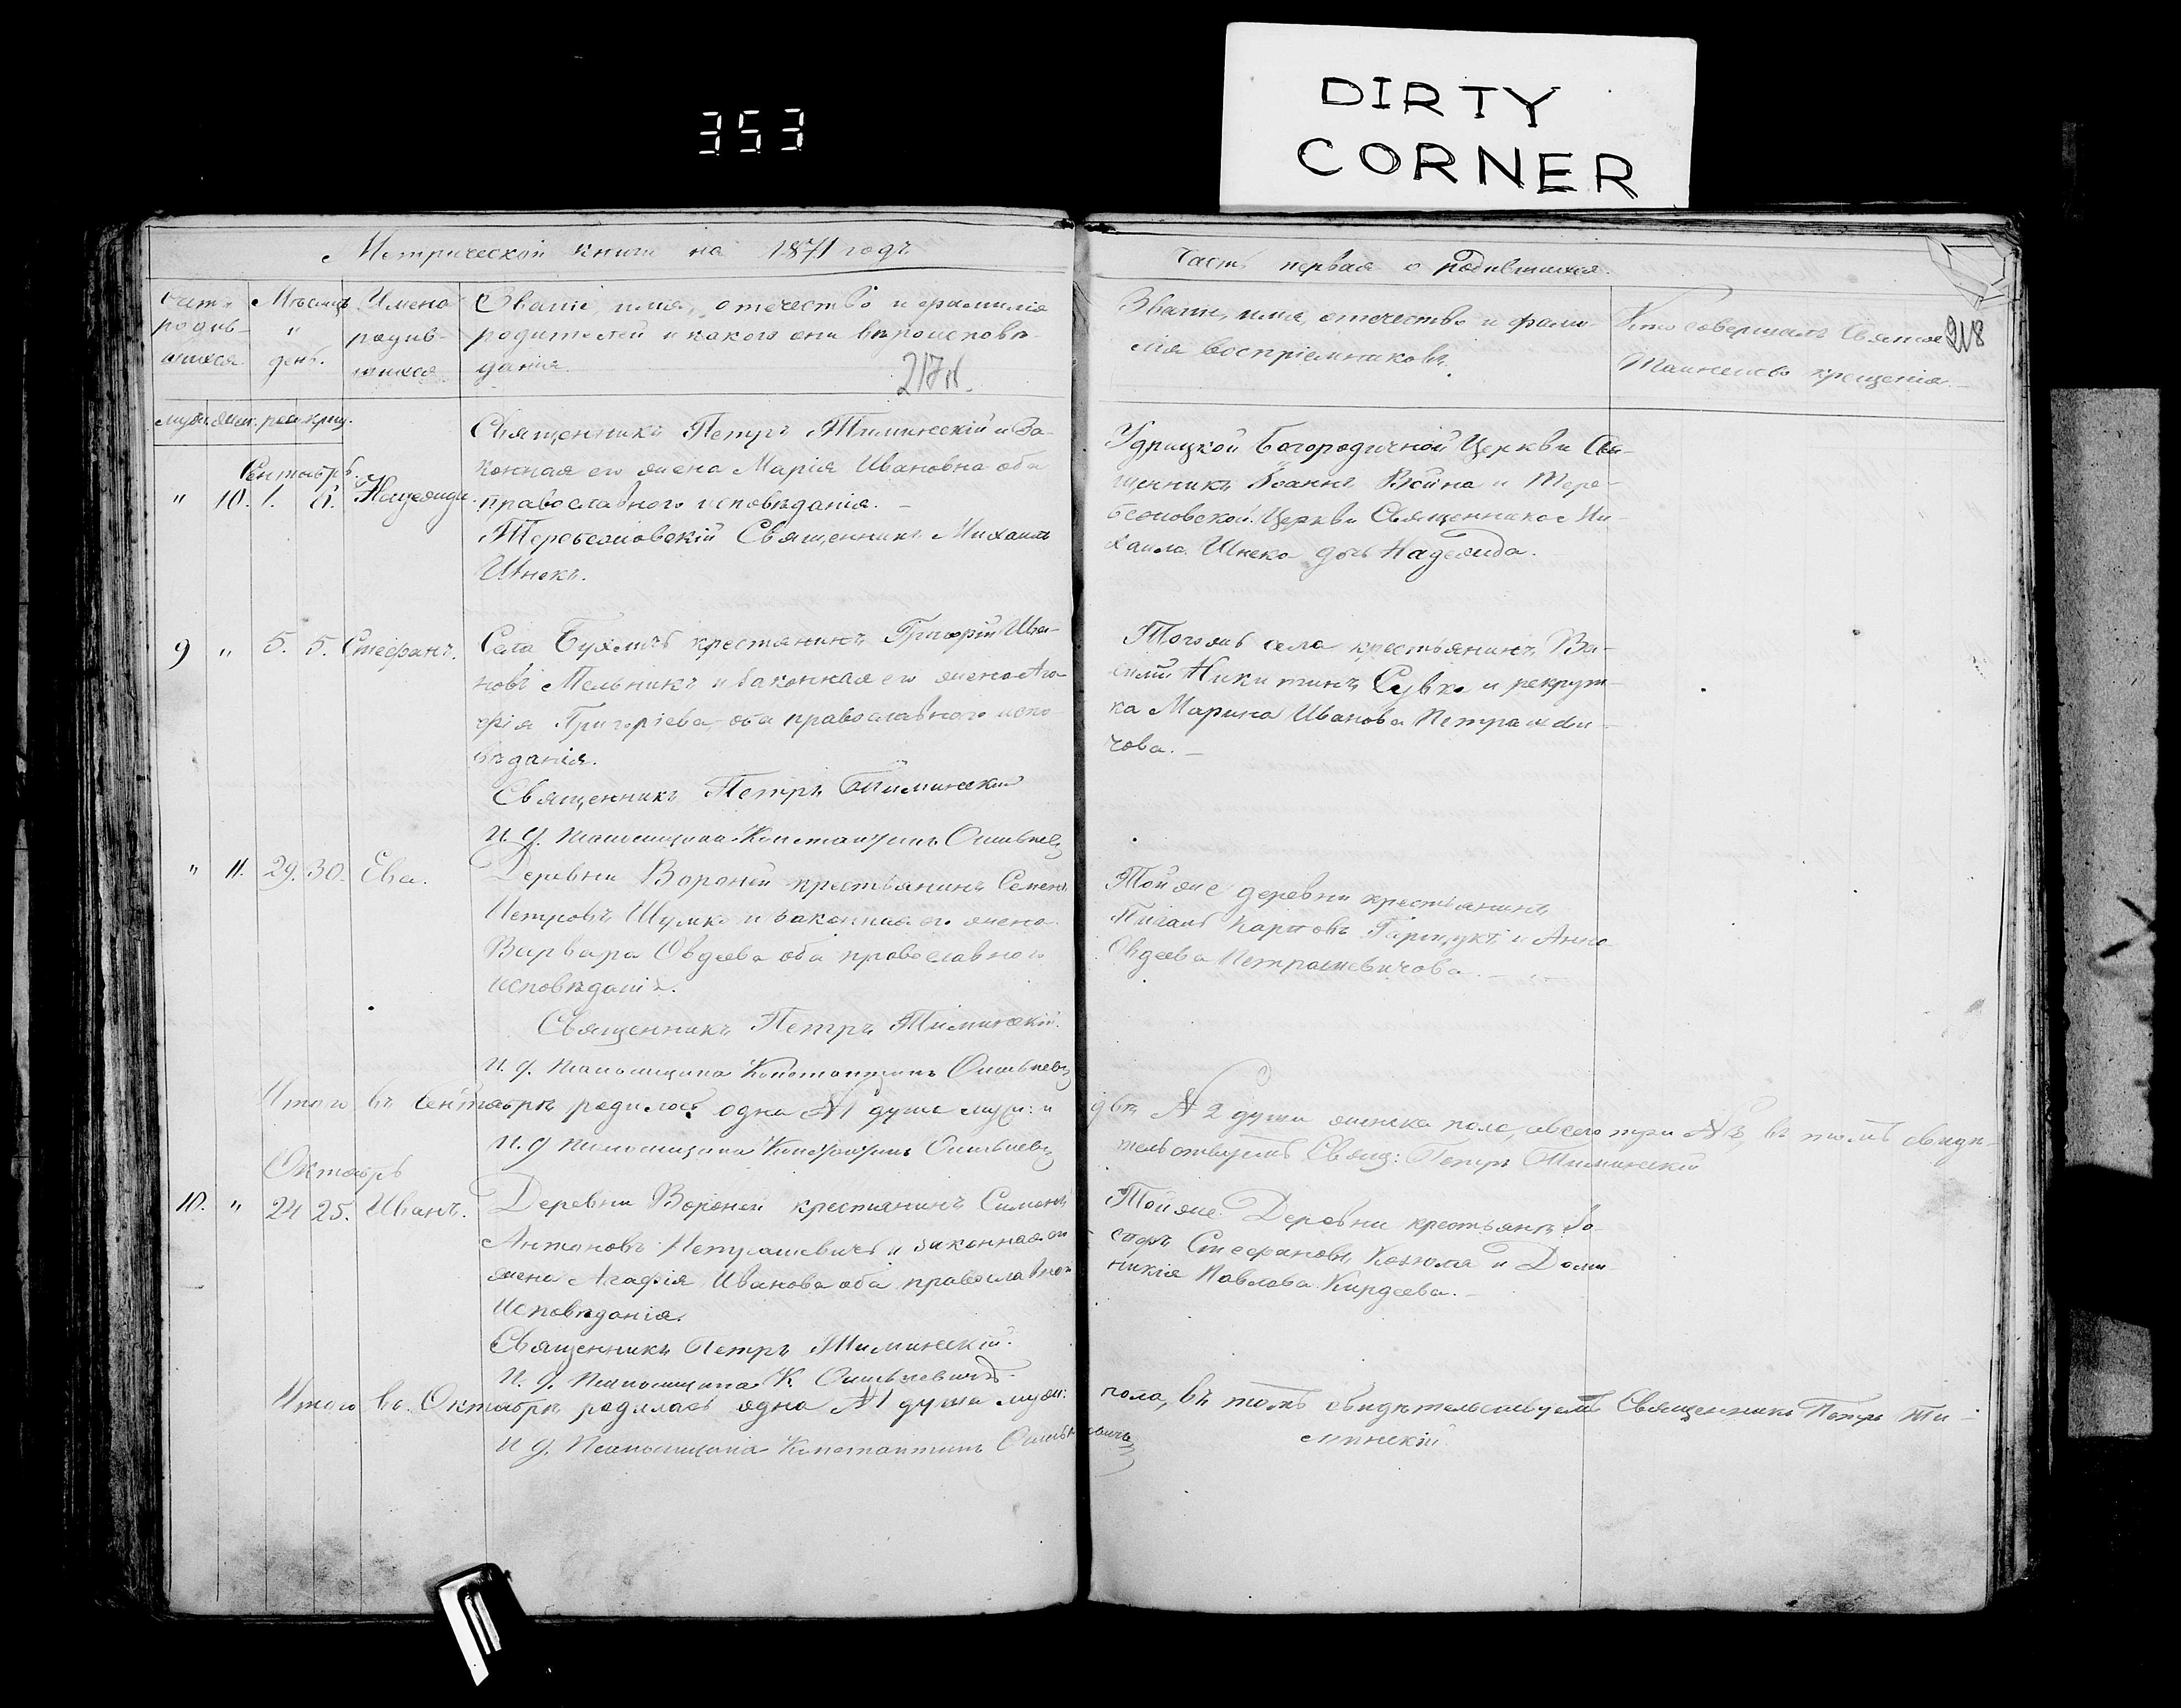 353
DIRTY
CORNER
Метрической книги на 1871 годъ
Часть первая о родившихся.
Счетъ родив-шихся.
Мѣсяцъ и день.
Имена родив-шихся
Званіе, имя, отечество и фамилія
родителей и какого они вѣроисповѣ-
данія.
217 н.
Званіе, имя, отечество и фами-
лія воспріемниковъ.
Кто совершалъ Святое
Таинство крещенія.
218
муж. жен. рож. крещ.
Сентябрь
" 10. 1. 8. Надежда.
Священникъ Петръ Тиминскій и За-
конная его жена Марія Ивановна оба
православного исповѣданія. –
Теребежовскій Священникъ Михаилъ
Шнекъ.
Удрицкой Богородичной Церкви Свя-
щенникъ Іоаннъ Война и Тере-
бежовской Церкви Священника Ми-
хаила Шнека дочь Надежда.
9 " 5. 5. Стефанъ.
Села крестянинъ Григорій Ива-
новъ Мельникъ и законная его жена Ага-
фія Григоріева оба православного испо-
вѣданія.
Священникъ Петръ Тиминскій
И. д. Псаломщика Константинъ
Тогожъ села крестьянинъ Ва-
силій Никитинъ Сувко и рекрут-
ка Марина Иванова Петрашеви-
чова. –
" 11. 29. 30. Ева.
Деревни Вороней крестьянинъ Семенъ
Петровъ Шумко и законная его жена
Варвара Овдеева оба православного
исповѣданія.
Священникъ Петръ Тиминскій.
И. д. Псаломщика Константинъ
Той же деревни крестьянинъ
Карповъ и Анна
Овдеева Петрашевичова. –
Итого въ Сентябрѣ родилось одна №1 душа муж: и
двѣ №2 души женска пола, а всего три №3, въ томъ свидѣ-
И. д. Псаломщика Константинъ
тельствуетъ Свящ: Петръ Тиминскій
Октябрь
10. " 24 25. Иванъ.
Деревни Вороней крестянинъ Симонъ
Антоновъ Петрашевичъ и законная его
жена Агафія Иванова оба православного
Исповѣданія.
Священникъ Петръ Тиминскій.
И. д. Псаломщика К.
Той же Деревни крестьянъ
Стефановъ и Доми-
никія Павлова Кирдеева. –
Итого въ Октябрѣ родилась одна №1 душа муж:
пола, въ томъ свидѣтельствуетъ Священникъ Петръ Ти-
И. д. Псаломщика Константинъ
минскій